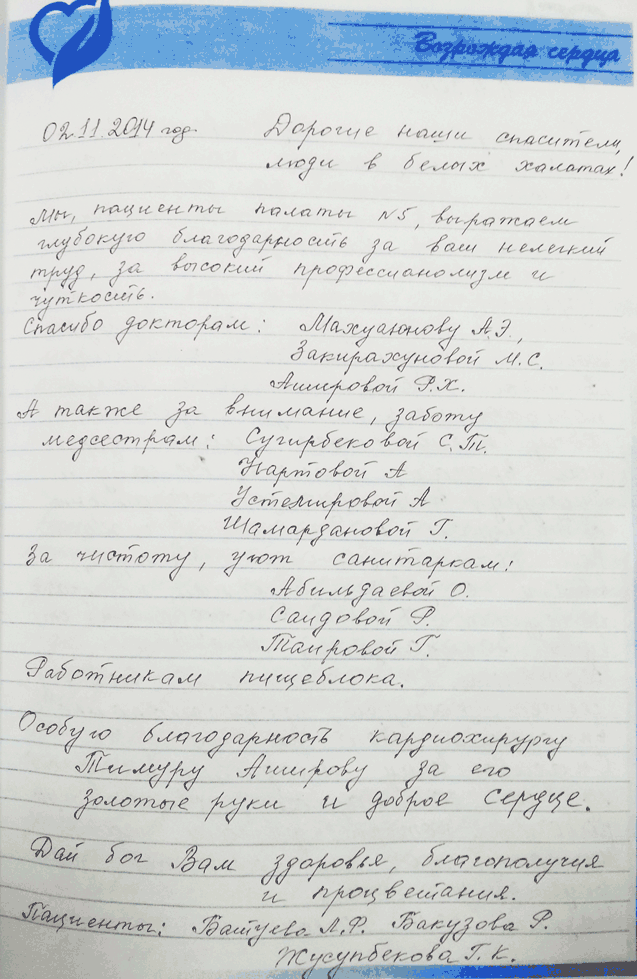 Возрождая сердца
02.11.2014 год.
Дорогие наши спасители,
люди в белых халатах!
Мы, пациенты палаты №5, выражаем
глубокую благодарность за ваш нелегкий
труд, за высокий профессианолизм и
чуткость.
Спасибо докторам: Махуаюнову А.Э.,
Закирахуновой М.С.
Ашировой Р.Х.
А также за внимание, заботу
медсестрам: Сугирбековой С.Т.
Нартовой А
Устемировой А
Шамардановой Г.
За чистоту, уют санитаркам:
Абильдаевой О.
Саидовой Р.
Таировой Г.
Работникам пищеблока.
Особую благодарность кардиохирургу
Тимуру Аширову за его
золотые руки и доброе сердце.
Дай бог Вам здоровья, благополучия
и процветания.
Пациенты: Батуева Л.Ф. Бакузова Р.
Жусупбекова Г.К.